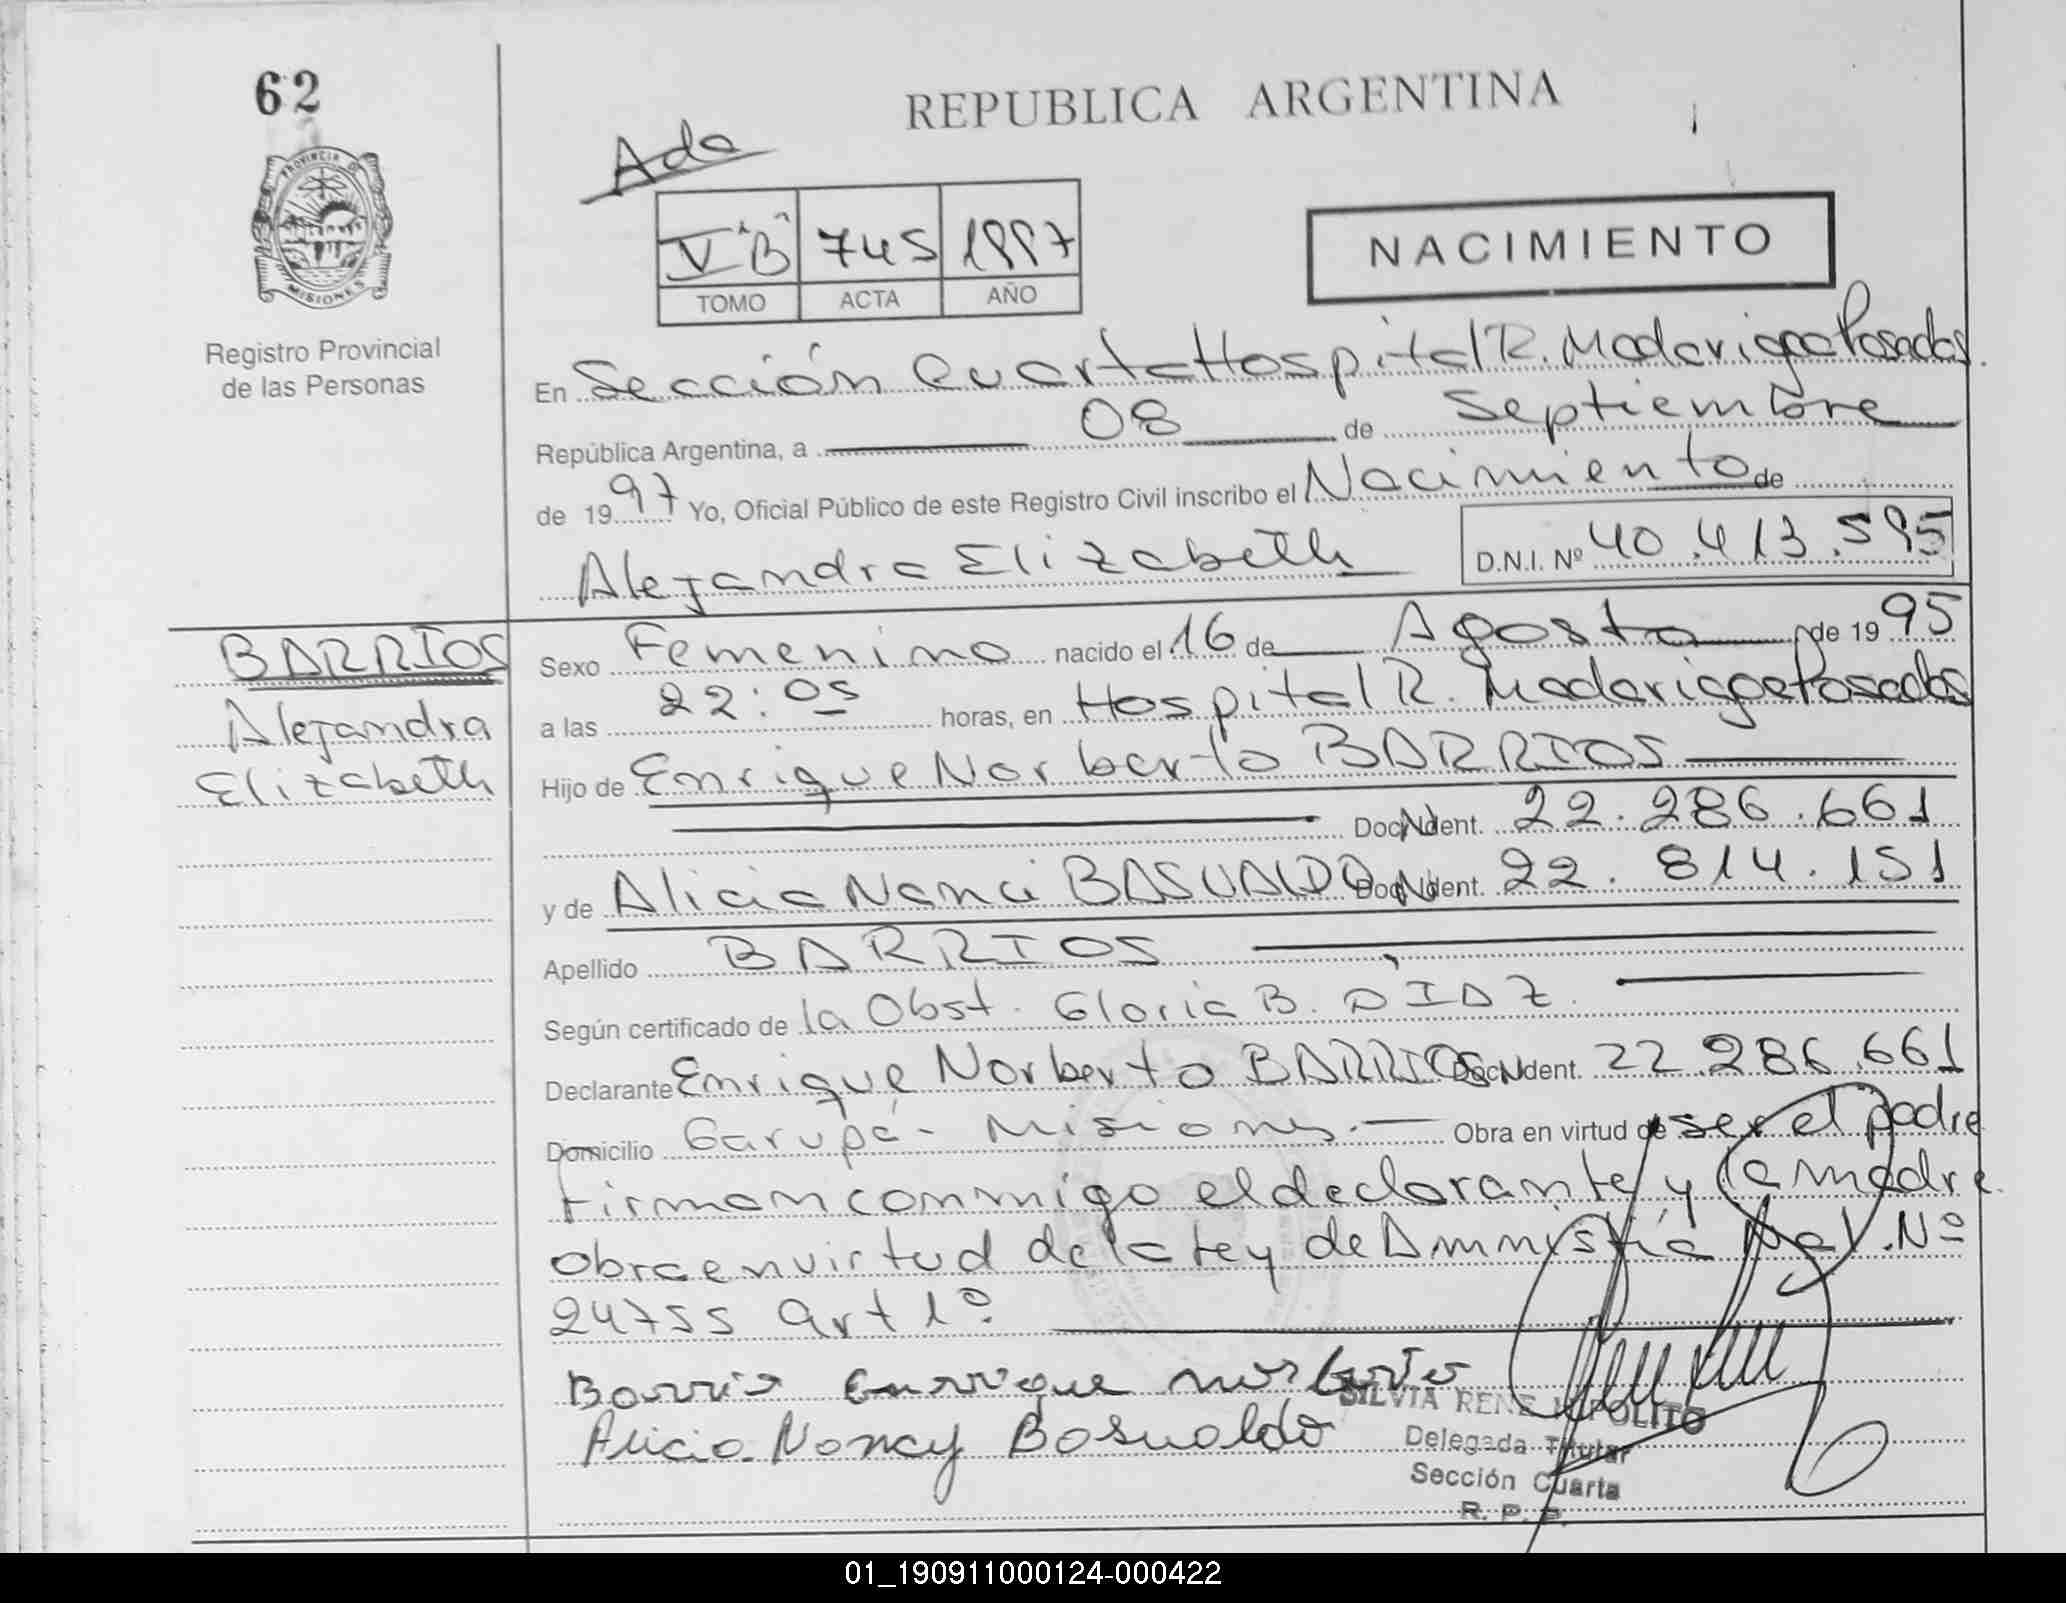 62
REPUBLICA ARGENTINA
Ada
V "B" 745 1997
TOMO ACTA AÑO
NACIMIENTO
PROVINCIA DE
MISIONES
Registro Provincial
de las Personas
En Sección Cuarta Hospital R. Madariaga Posadas.
República Argentina, a 08 de Septiembre
de 1997 Yo, Oficial Público de este Registro Civil inscribo el Nacimiento de
Alejandra Elizabeth D.N.I. Nº 40.413.595
BARRIOS
Alejandra
Elizabeth
Sexo Femenino nacido el 16 de Agosto de 1995
a las 22:05 horas, en Hospital R. Madariaga Posadas
Hijo de Enrique Norberto BARRIOS
Doc. N Ident. 22.286.661
y de Alicia Nanci BASUALDO Doc. N Ident. 22.814.151
Apellido BARRIOS
Según certificado de la Obst. Gloria B. DÍAZ.
Declarante Enrique Norberto BARRIOS Doc. N Ident. 22.286.661
Domicilio Garupá - Misiones. Obra en virtud de ser el padre
firman conmigo el declarante y la madre.
Obra en virtud de la Ley de Amnistía Nal. Nº
24755 art 1º.
Barrios Enrique Norberto
Alicia Nancy Basualdo
SILVIA RENE HIPOLITO
Delegada Titular
Sección Cuarta
R. P. P.
01_190911000124-000422